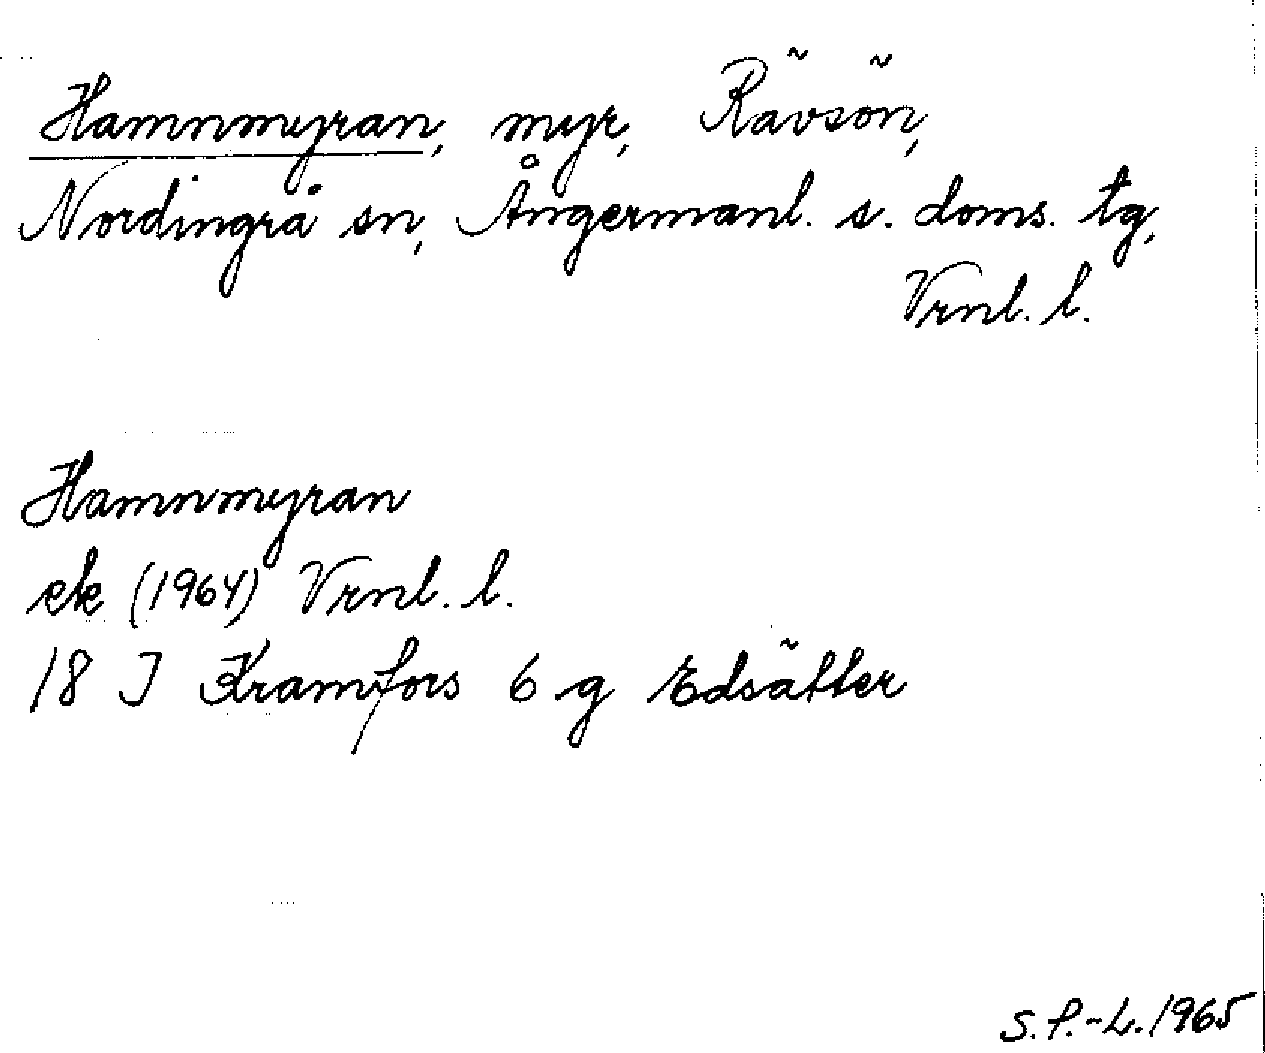 Hamnmyran, myr, Rävsön,
Nordingrå sn, Ångermanl. s. doms. tg,
Vrnl. l.
Hamnmyran
ek (1964) Vrnl. l.
18 J Kramfors 6 g Edsätter
S.P.-L. 1965